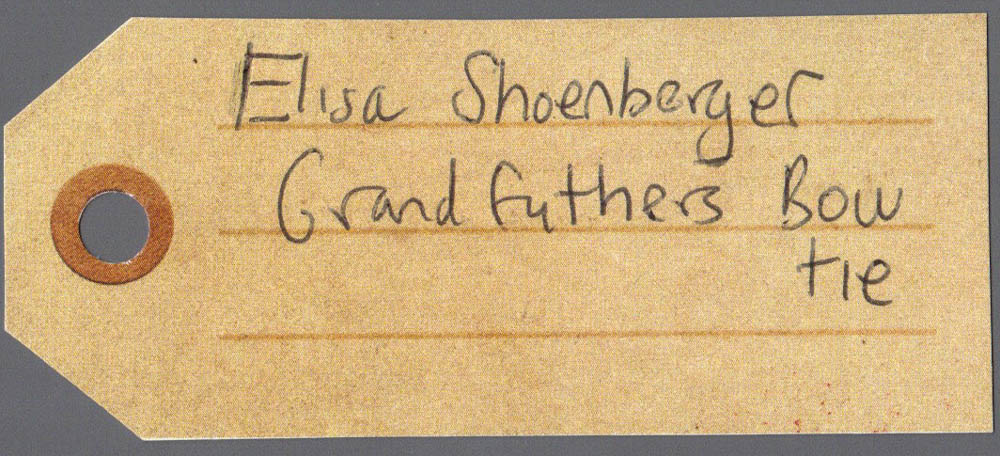 Elisa Shoenberger
Grandfathers Bow
tie